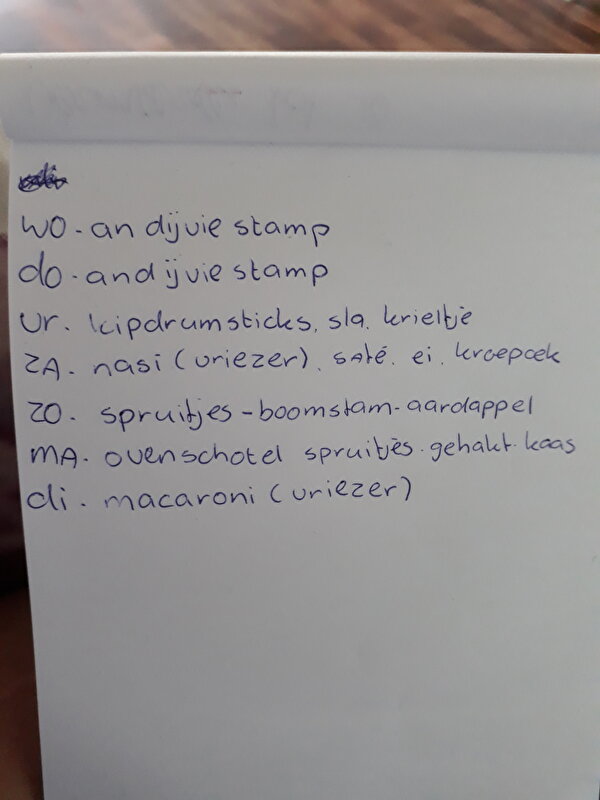 WO - andijvie stamp
do - andijvie stamp
vr. kipdrumsticks, sla, krieltje
ZA. nasi (vriezer), saté, ei, kroepoek
ZO. spruitjes - boomstam - aardappel
MA. ovenschotel spruitjes. gehakt. kaas
di. macaroni (vriezer)